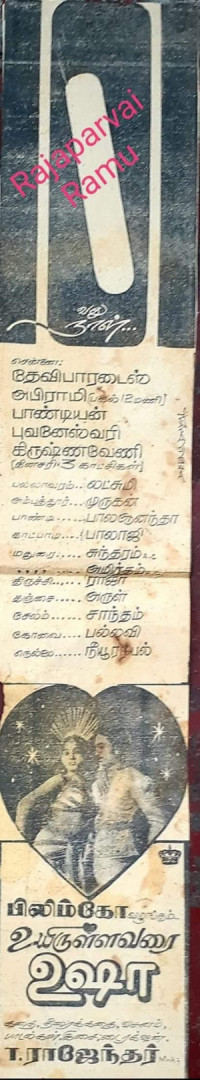 Rajaparvai
Ramu
நாள்...
சென்னை:
தேவிபாரடைஸ்
அபிராமி (பகல் 12 மணி)
பாண்டியன்
புவனேஸ்வரி
கிருஷ்ணவேணி
(தினசரி 3 காட்சிகள்)
பல்லாவரம்.. லட்சுமி
அம்பத்தூர்... முருகன்
பாண்டி..... பாலஆனந்தா
காட்பாடி.... பாலாஜி
மதுரை..... சுந்தரம்
திருச்சி..... ராஜா
தஞ்சை..... அருள்
சேலம்..... சாந்தம்
கோவை.... பல்லவி
நெல்லை...... நியூராயல்
பிலிம்கோ வழங்கும்..
உயிருள்ளவரை
உஷா
கதை, திரைக்கதை, வசனம்,
பாடல்கள், இசை, டைரக்ஷன்:
T.ராஜேந்தர்